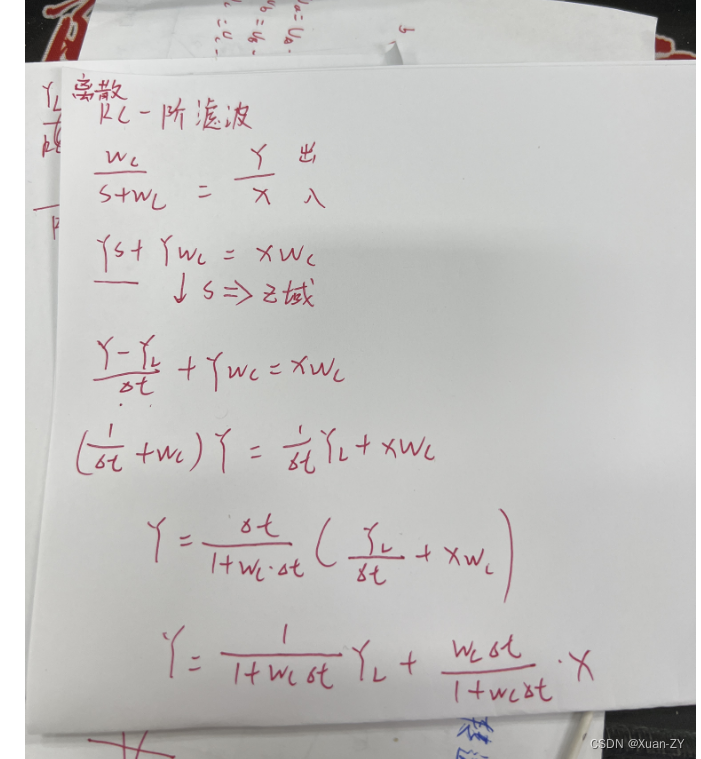 离散
RC一阶滤波
wc/(s+wc) = Y/X 出 入
Ys + Ywc = xwc
↓ s => z域
(Y-YL)/Δt + Ywc = xwc
(1/Δt + wc) Y = 1/Δt YL + xwc
Y = Δt/(1+wc·Δt) ( YL/Δt + xwc )
Y = 1/(1+wcΔt) YL + wcΔt/(1+wcΔt) · X
CSDN @Xuan-ZY